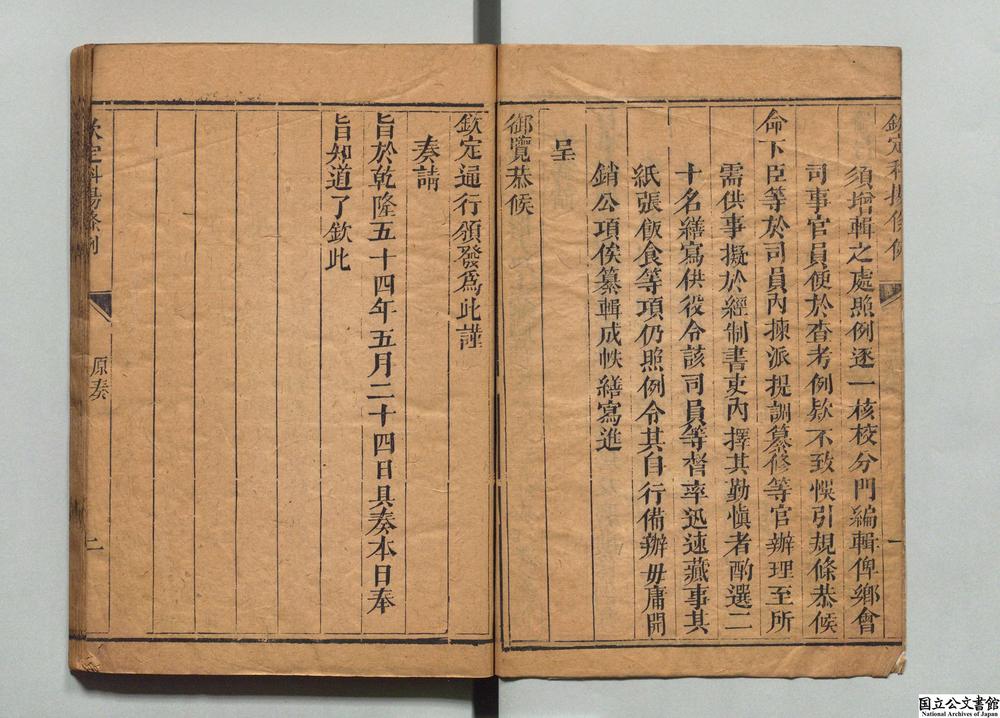 欽定科場條例
一
須增輯之處照例逐一核校分門編輯俾鄉會
司事官員便於查考例款不致悞引規條恭候
命下臣等於司員內揀派提調纂修等官辦理至所
需供事擬於經制書吏內擇其勤愼者酌選二
十名繕寫供役令該司員等督率迅速蕆事其
紙張飯食等項仍照例令其自行備辦毋庸開
銷公項俟纂輯成帙繕寫進
呈
御覽恭候
欽定通行頒發爲此謹
奏請
旨於乾隆五十四年五月二十四日具奏本日奉
旨知道了欽此
欽定科場條例
原奏
二
国立公文書館
National Archives of Japan